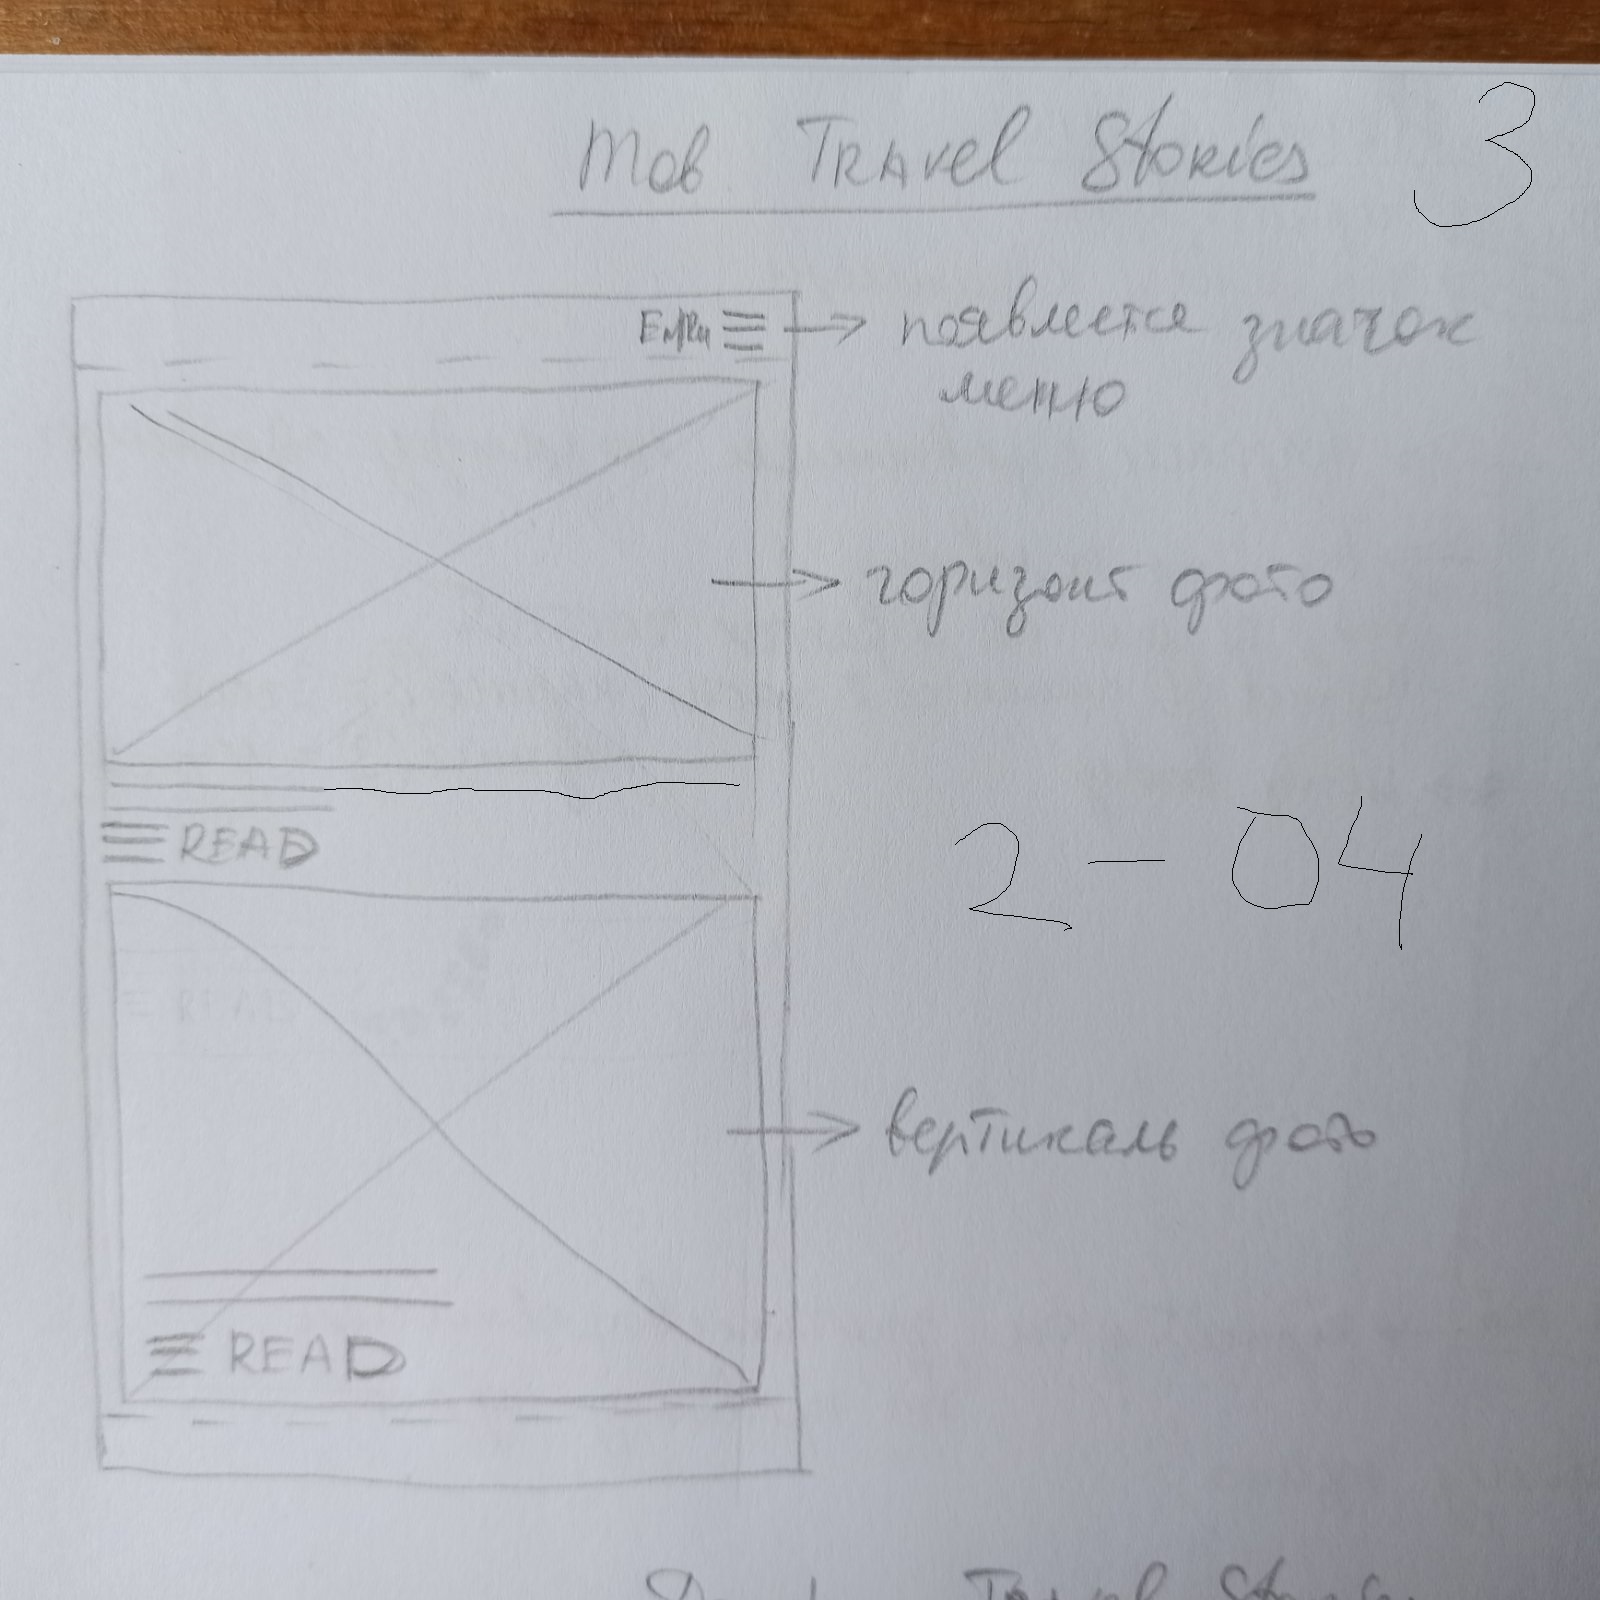 Mob Travel Stories 3
En/Ru → появляется значок
меню
→ горизонт фото
READ
2 - 04
→ вертикаль фото
READ
Travel